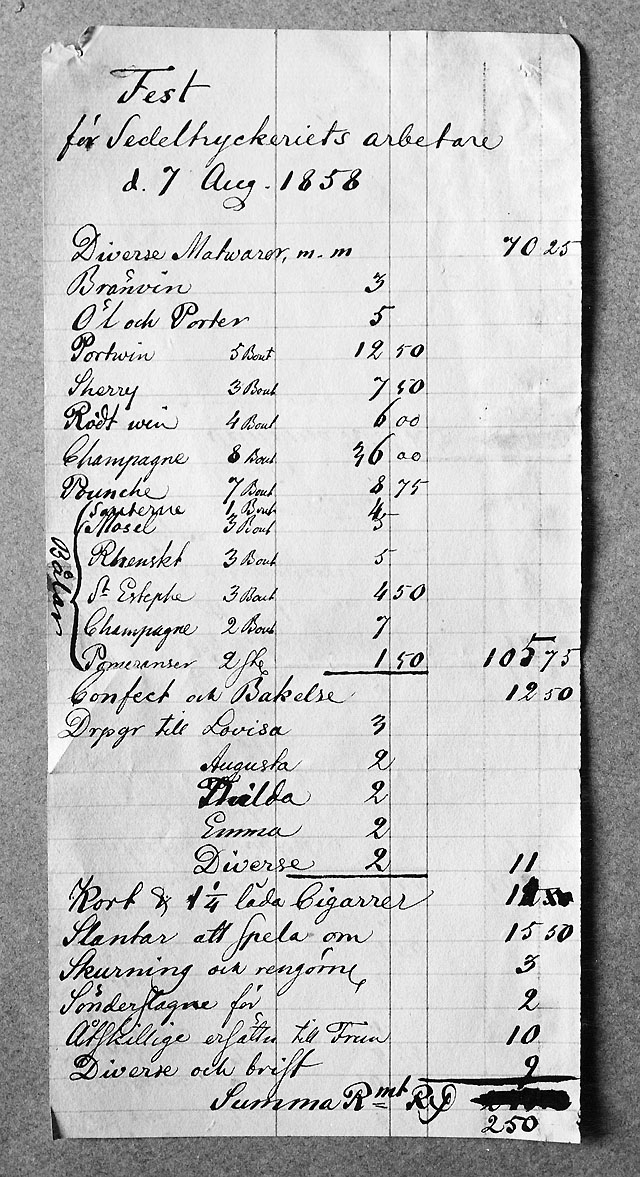 Fest
för Sedeltryckeriets arbetare
d. 7 Aug. 1858
Diverse Matwaror, m. m 70 25
Bränvin 3
Öl och Porter 5
Portwin 5 Bout 12 50
Sherry 3 Bout 7 50
Rödt win 4 Bout 6 00
Champagne 8 Bout 36 00
Pounche 7 Bout 8 75
Bålar
Sauterne 1 Bout 4
Mosel 3 Bout 5
Rhenskt 3 Bout 5
St Estephe 3 Bout 4 50
Champagne 2 Bout 7
Pomeranser 2 1 50 105 75
Confect och Bakelse 12 50
Drpgr till Lovisa 3
Augusta 2
Thilda 2
Emma 2
Diverse 2 11
Kort & 1 1/4 låda Cigarrer
Slantar att spela om 15 50
Skurning och rengörng 3
Sönderslagne för 2
Åtskillige till Frun 10
Diverse och brist 9
Summa Rmt
250